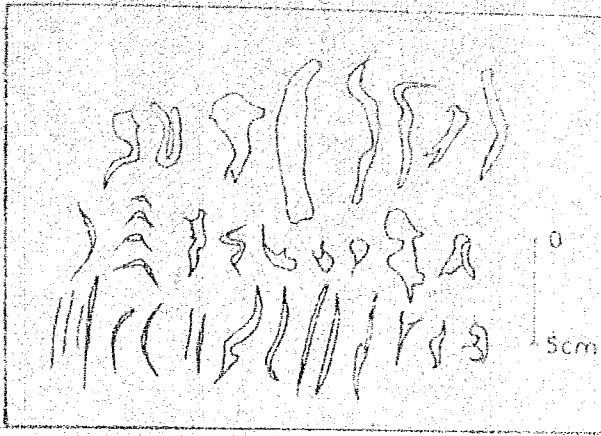 0
5cm